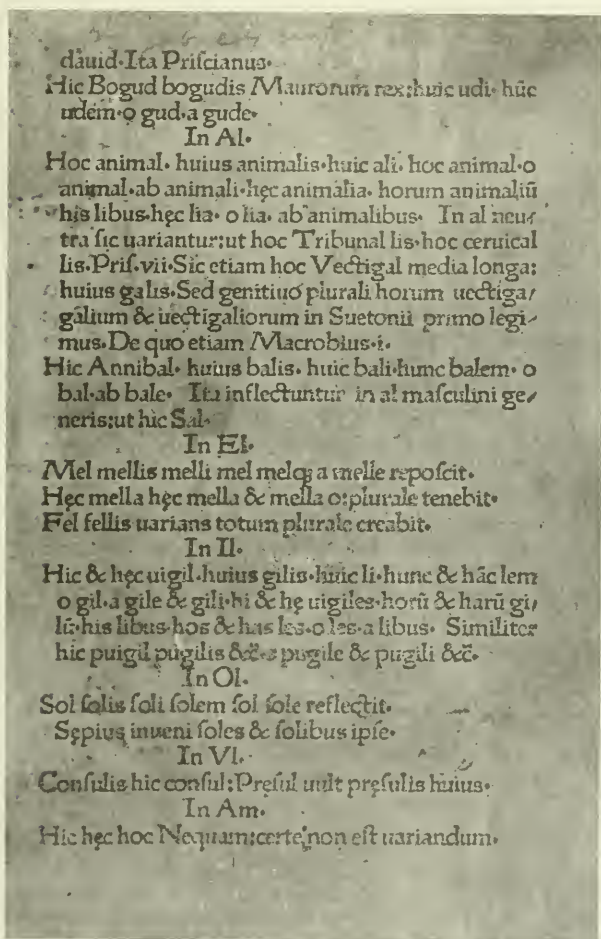 dauid·Ita Priſcianus·
Hic Bogud bogudis Maurorum rex:huic udi· hūc
udem·o gud·a gude·
In Al·
Hoc animal· huius animalis·huic ali· hoc animal·o
animal·ab animali·hęc animalia· horum animaliū
his libus·hęc lia· o lia· ab animalibus· In al neu⸗
tra ſic uariantur:ut hoc Tribunal lis·hoc ceruical
lis·Priſ·vii·Sic etiam hoc Vectigal media longa:
huius galis·Sed genitiuo plurali horum uectiga⸗
galium & uectigaliorum in Suetonii primo legi⸗
mus·De quo etiam Macrobius·i·
Hic Annibal· huius balis· huic bali·hunc balem· o
bal·ab bale· Ita inflectuntur in al maſculini ge⸗
neris:ut hic Sal·
In El·
Mel mellis melli mel melq; a melle repoſcit·
Hęc mella hęc mella & mella o:plurale tenebit·
Fel fellis uarians totum plurale creabit·
In Il·
Hic & hęc uigil·huius gilis·huic li·hunc & hāc lem
o gil·a gile & gili·hi & hę uigiles·horū & harū gi⸗
lū·his libus·hos & has les·o les·a libus· Similiter
hic puigil pugilis &c̄·a pugile & pugili &c̄·
In Ol·
Sol ſolis ſoli ſolem ſol ſole reflectit·
Sępius inueni ſoles & ſolibus ipſe·
In Vl·
Conſulis hic conſul:Pręſul uult pręſulis huius·
In Am·
Hic hęc hoc Nequam:certe non eſt uariandum·